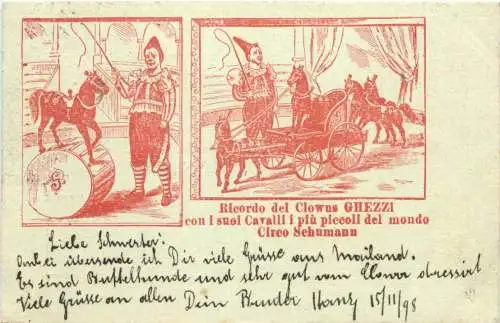 Ricordo dei Clowns GHEZZI
con i suoi Cavalli i più piccoli del mondo
Circo Schumann
Liebe Schwester!
Anbei übersende ich Dir viele Grüsse aus Mailand.
Es sind Affenhunde und sehr gut vom Clown dressirt
Viele Grüsse an allen Dein Bruder Hans 15/11/98